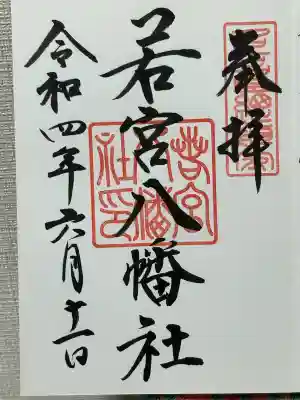 奉拝
若宮八幡社
令和四年六月十一日
若宮八幡社印